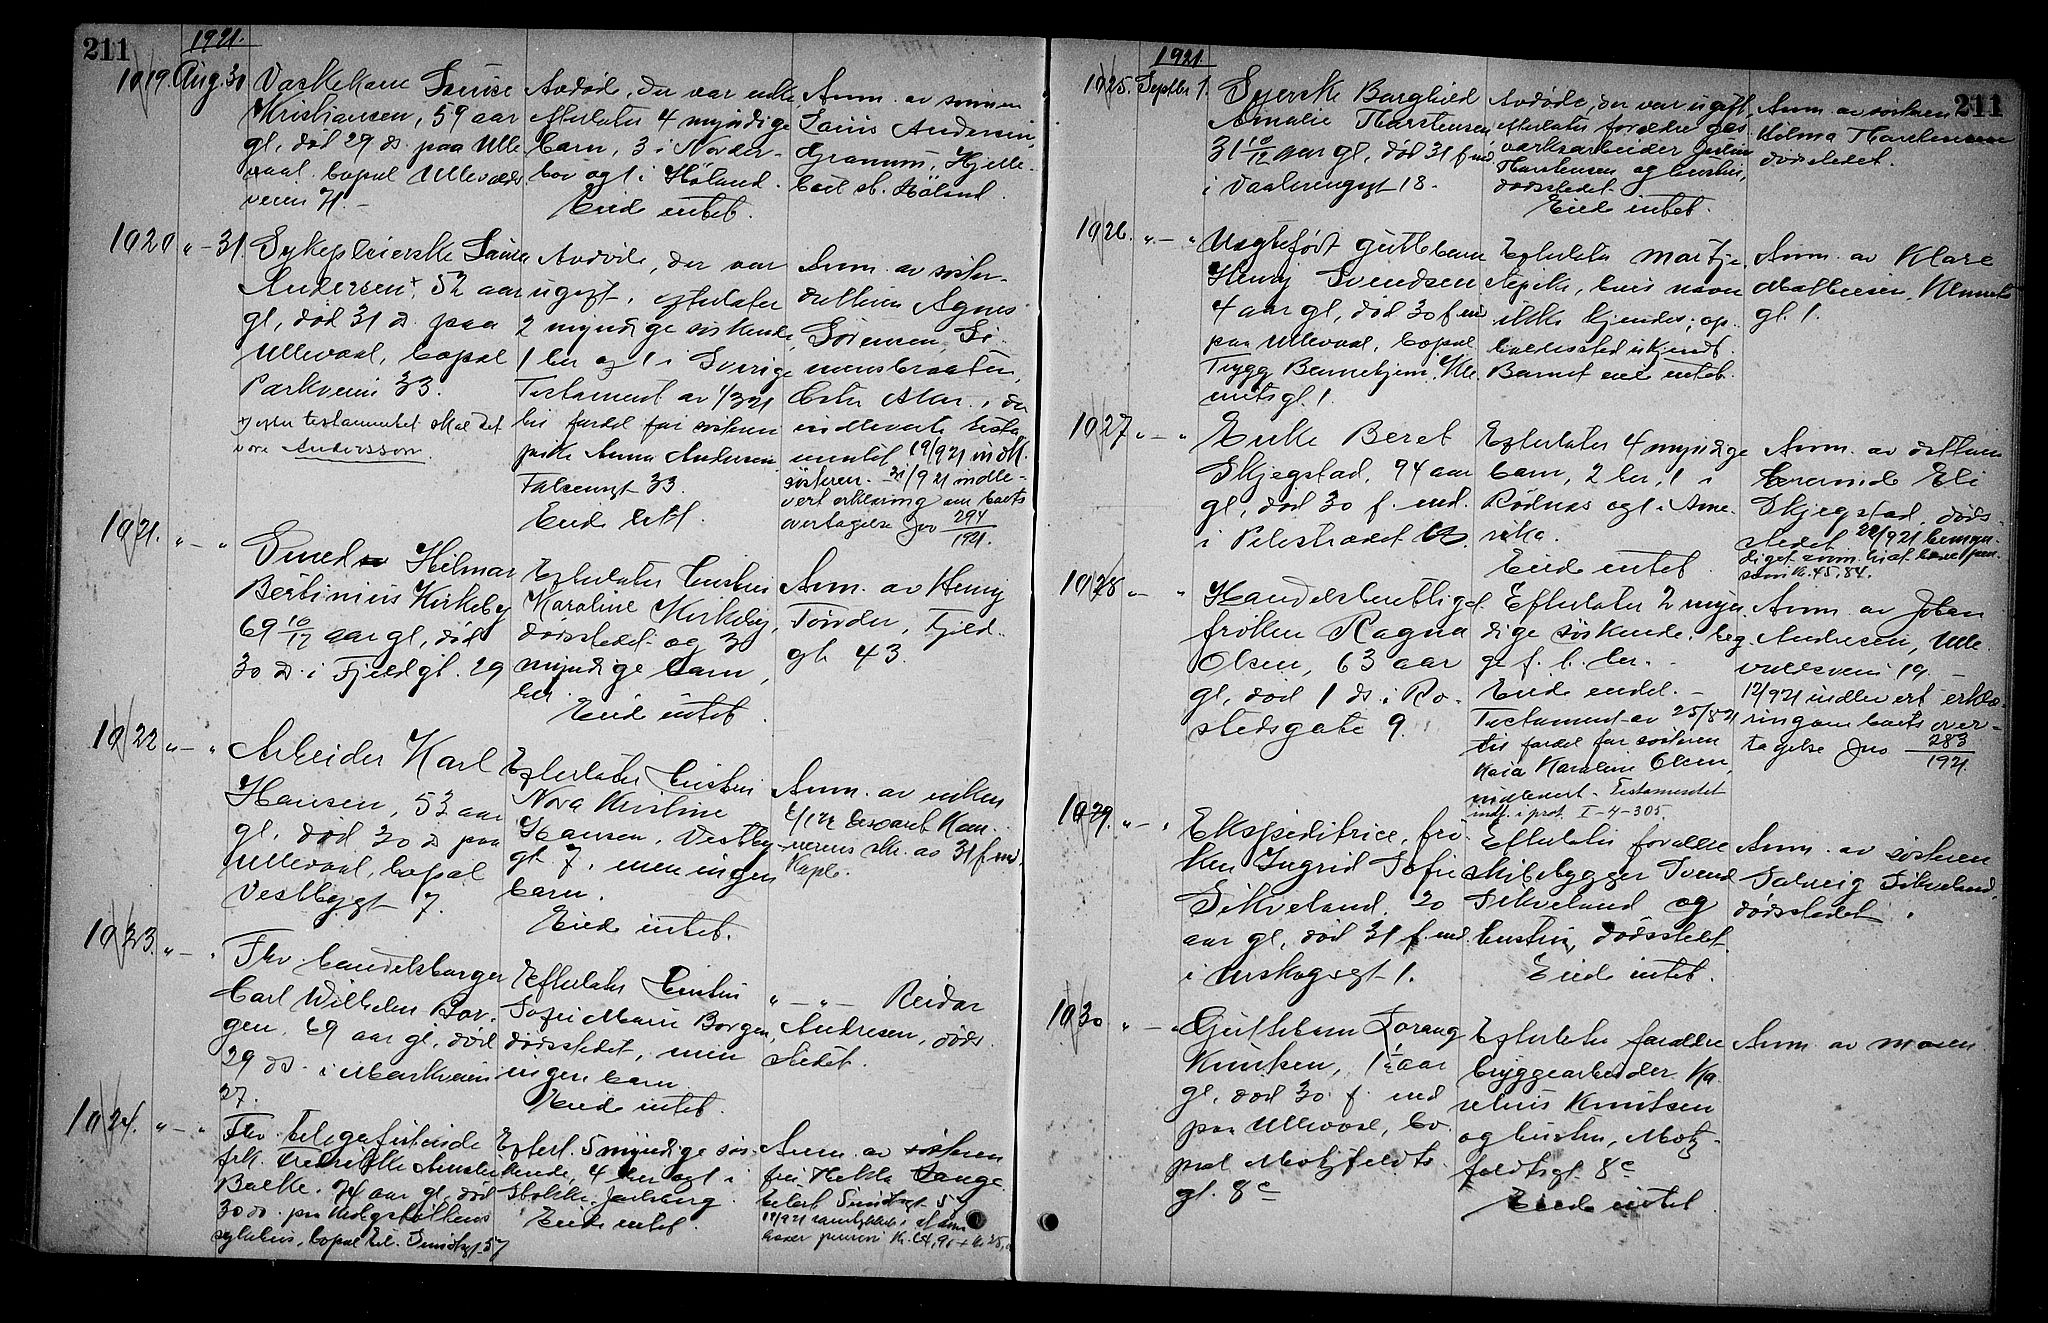 211
1921.
1019 Aug. 30
Vaskekone Louise
Kristiansen, 59 aar
gl, død 29 ds. paa Ulle
vaal. bopæl Ullevaals
veien 71.
Avdøde, der var enke
efterlater 4 myndige
barn, 3 i Norder-
hov og 1 i Høland.
Eiede intet.
Anm. av sønnen
Andersen,
Hjelle-
bøl st. Høland.
1020 " - 31.
Sykepleierske Louise
Andersen +, 52 aar
gl, død 31 ds. paa
Ullevaal, bopæl
Parkveien 33.
+) efter testamentet skal det
være Andersson.
Avdøde, der var
ugift, efterlater
2 myndige søskende,
1 her og 1 i Sverige
Testament av 1/3 21
til fordel for søsteren
pike Anna Andersen
Falsensgt 33.
Eiede litt.
Anm. av søster-
datteren Agnes
Sørensen, Si-
monsbraaten,
Østre Aker, der
indleverte testa
mentet 19/921 indk.
søsteren. 21/921 indle-
vert erklæring om boets
overtagelse Jno 294/1921.
1021. " - "
Smed Hilmar
Bertinius Kirkeby
69 10/12 aar gl, død
30 ds. i Fjeldgt. 29
Efterlater hustru
Karoline Kirkeby,
dødsstedet og 3
myndige barn,
her.
Eiede intet.
Anm. av Henry
Tønder, Fjeld-
gt. 43.
1022 " - "
Arbeider Karl
Hansen, 53 aar
gl, død 30 ds paa
Ullevaal, bopæl
Vestbygt 7.
Efterlater hustru
Nora Kristine
Hansen, Vestby-
gt. 7, men ingen
barn.
Eiede intet.
Anm. av enken
besvaret Kam-
merets skr. av 31 f.md.
1023. " - "
Fhv. handelsborger
Carl Wilhelm Bor-
gen, 69 aar gl, død
29 ds. i Markveien
27.
Efterlater hustru
Sofie Marie Borgen,
dødsstedet, men
ingen barn.
Eiede intet.
" - " - Reidar
Andresen, døds-
stedet.
1024. " - "
Fhv. telegrafistinde
frk. Fredrikke Amalie
Balke, 74 aar gl, død
30 ds. paa
sykehus, bopæl Eil. Sundtsgt 57
Efterl. 5 myndige søs-
kende, 4 her og 1 i
Stokke, Jarlsberg.
Eiede intet.
Anm. av søsteren
frk. Hekla Lange
Eilert Sundtsgt 57
1921.
1025. Septbr 1.
Syerske Borghild
Amalie Thorstensen
31 10/12 aar gl, død 31 f.md.
i Vaalerenggt 18.
Avdøde, der var ugift,
efterlater forældre gas-
verksarbeider
Thorstensen og hustru,
dødsstedet.
Eiede intet.
Anm. av søsteren
Hilma Thorstensen
dødsstedet.
211
1026. " - "
Uegtefødt guttebarn
Henry Svendsen
4 aar gl, død 30 f. md
paa Ullevaal, bopæl
Trygg Barnehjem, Kle-
metsgt. 1.
Efterlater mor, tje-
nepike, hvis navn
ikke kjendes; op-
holdssted ukjendt.
Barnet eiet intet.
Anm. av Klara
Mathiesen, Klemets
gt. 1.
1027 " - "
Enke Beret
Skjegstad, 94 aar
gl, død 30 f. md.
i Pilestrædet
Efterlater 4 myndige
barn, 2 her, 1 i
Rødnes og 1 i Ame-
rika.
Eiede intet.
Anm. av datteren
Eli
Skjegstad, døds-
stedet. 22/921 bemyn-
diget anm. til at hæve pen-
sion Kr. 45,84.
1028 " - "
Handelsberettiget
frøken Ragna
Olsen, 63 aar
gl, død 1 ds. i Ro-
stedsgate 9.
Efterlater 2 myn-
dige søskende, beg-
ge f. b. her. -
Eiede endel. -
Testament av 25/821
til fordel for søsteren
Kaia Karoline Olsen,
indlevert. Testamentet
indf. i prot. I-4-305.
Anm. av Johan
Andresen, Ulle-
vaalsveien 19. -
12/921 indlevert erklæ-
ring om boets over-
tagelse Jno 283/1921.
1029. " - "
Ekspeditrice, frø-
ken Ingrid Sofie
Sikveland, 20
aar gl, død 31 f. md.
i Urskogsgt 1.
Efterlater forældre
skibsbygger Svend
Sikveland og
hustru, dødsstedet.
Eiede intet.
Anm. av søsteren
Solveig Sikveland,
dødsstedet.
1030 " - "
Guttebarn Lorang
Knutsen, 1½ aar
gl, død 30. f. md
paa Ullevaal, bo-
pæl Motzfeldts-
gt. 8c
Efterlater forældre
bryggearbeider Ka-
relius Knutsen
og hustru, Motz-
feldtsgt. 8c
Eiede intet.
Anm. av moren